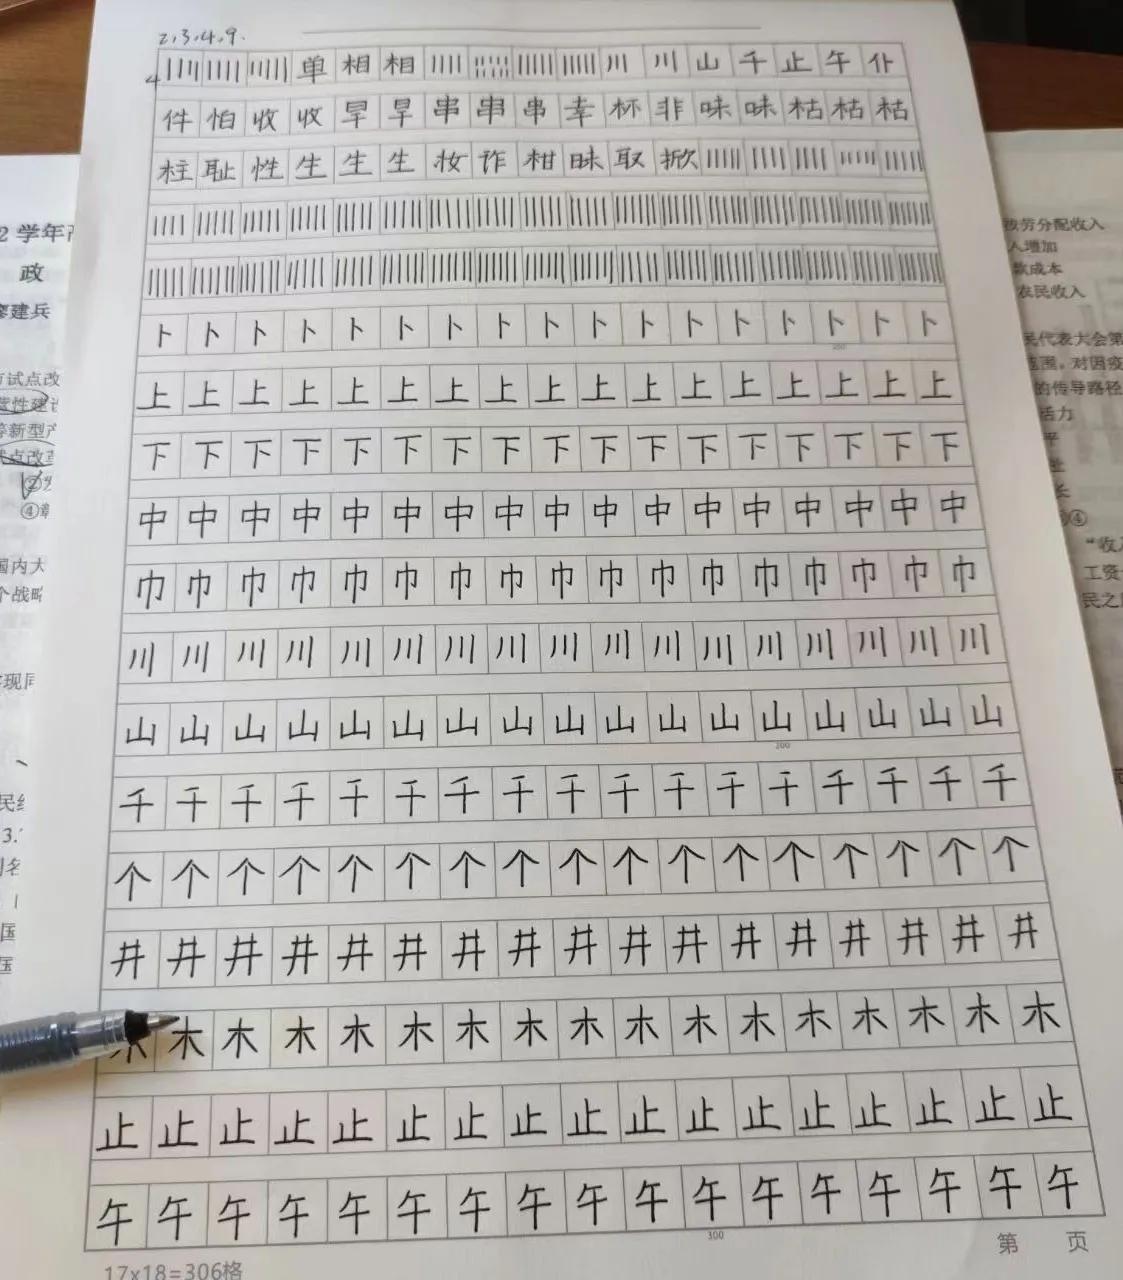 2,3,4,9.
4 单相相川川山千止午仆
件怕收收早早串串串幸杯非味味枯枯枯
柱耻性生生生妆诈柑昧取掀
卜卜卜卜卜卜卜卜卜卜卜卜卜卜卜卜卜
上上上上上上上上上上上上上上上上上
下下下下下下下下下下下下下下下下下
中中中中中中中中中中中中中中中中中
巾巾巾巾巾巾巾巾巾巾巾巾巾巾巾巾巾
川川川川川川川川川川川川川川川川川
山山山山山山山山山山山山山山山山山
200
千千千千千千千千千千千千千千千千千
个个个个个个个个个个个个个个个个个
井井井井井井井井井井井井井井井井井
木木木木木木木木木木木木木木木木木
止止止止止止止止止止止止止止止止止
午午午午午午午午午午午午午午午午午
300
第 页
17x18=306格
2 学年
政
建兵
试点改
性建
新型产
点改
④
国内大
个战略
现同
民
3.
国
劳分配收入
人增加
款成本
农民收入
民代表大会第
围，对因疫
的传导路径
活力
平
长
④
“收入
工资
民之